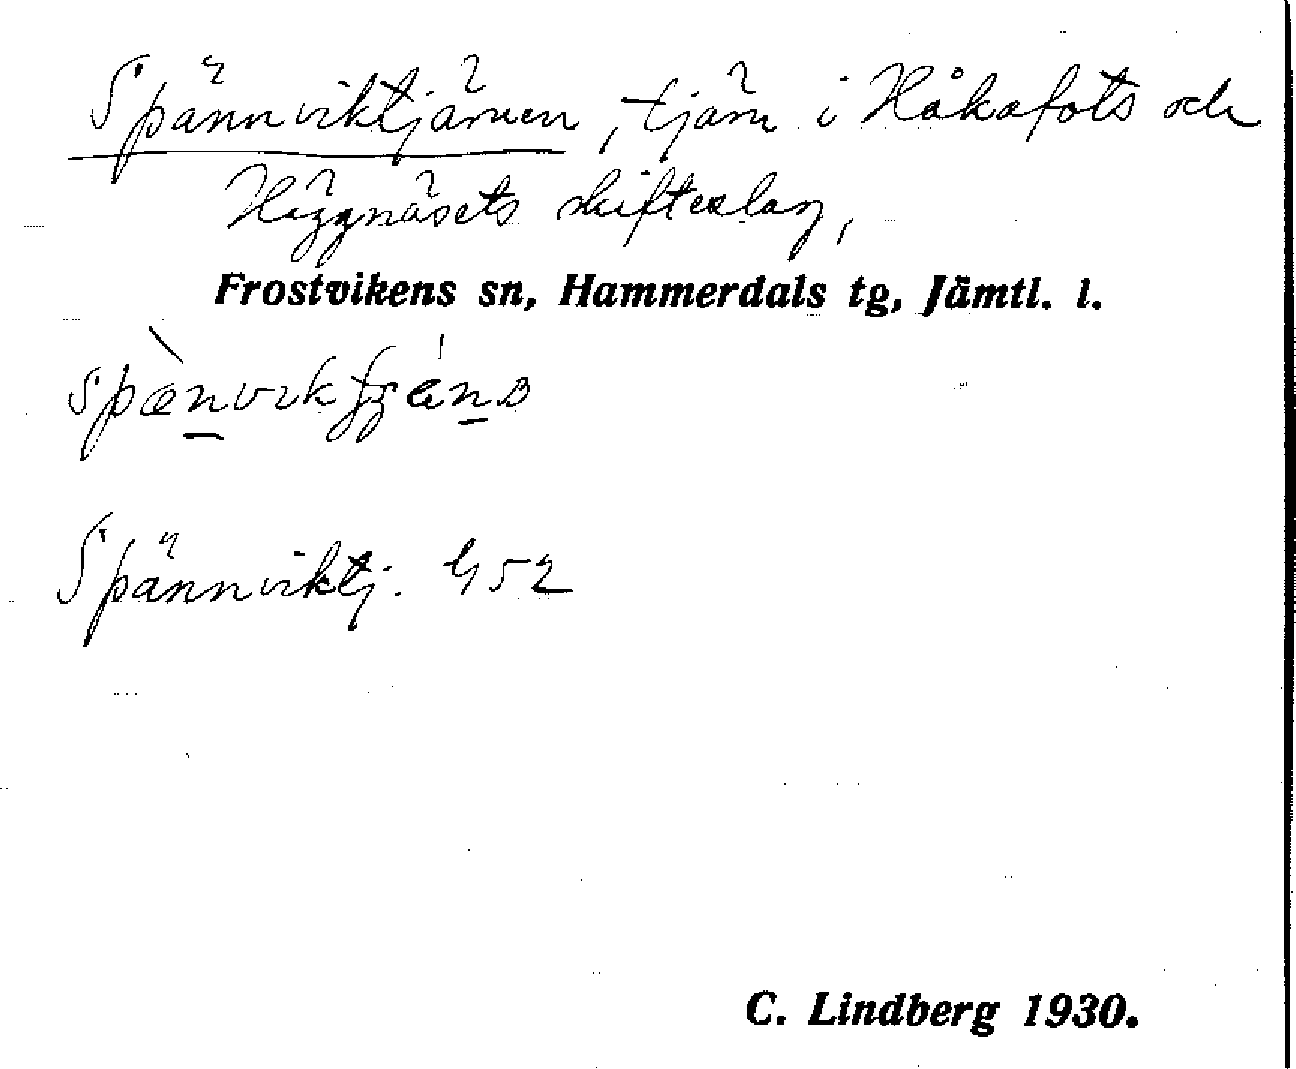 Spännviktjärnen, tjärn i Håkafots och
Häggnäsets skifteslag,
Frostvikens sn, Hammerdals tg, Jämtl. l.
Spännviktj. G 52
C. Lindberg 1930.